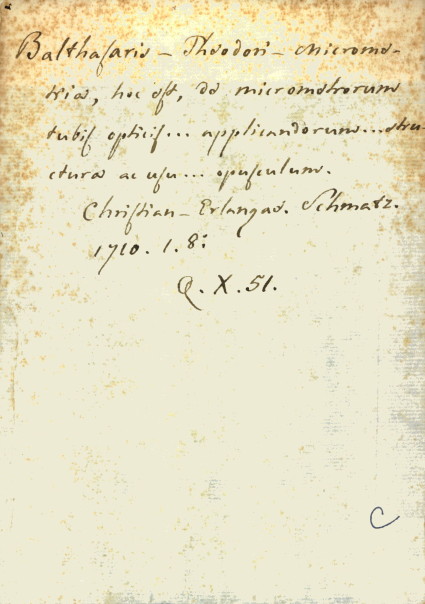 Balthasaris – Theodori – Microme-
triæ, hoc est, de micrometrorum
tubis opticis... applicandorum... stru-
ctura ac usu... opusculum.
Christian-Erlangae. Schmatz.
1710. 1. 8:
Q. X. 51.
C